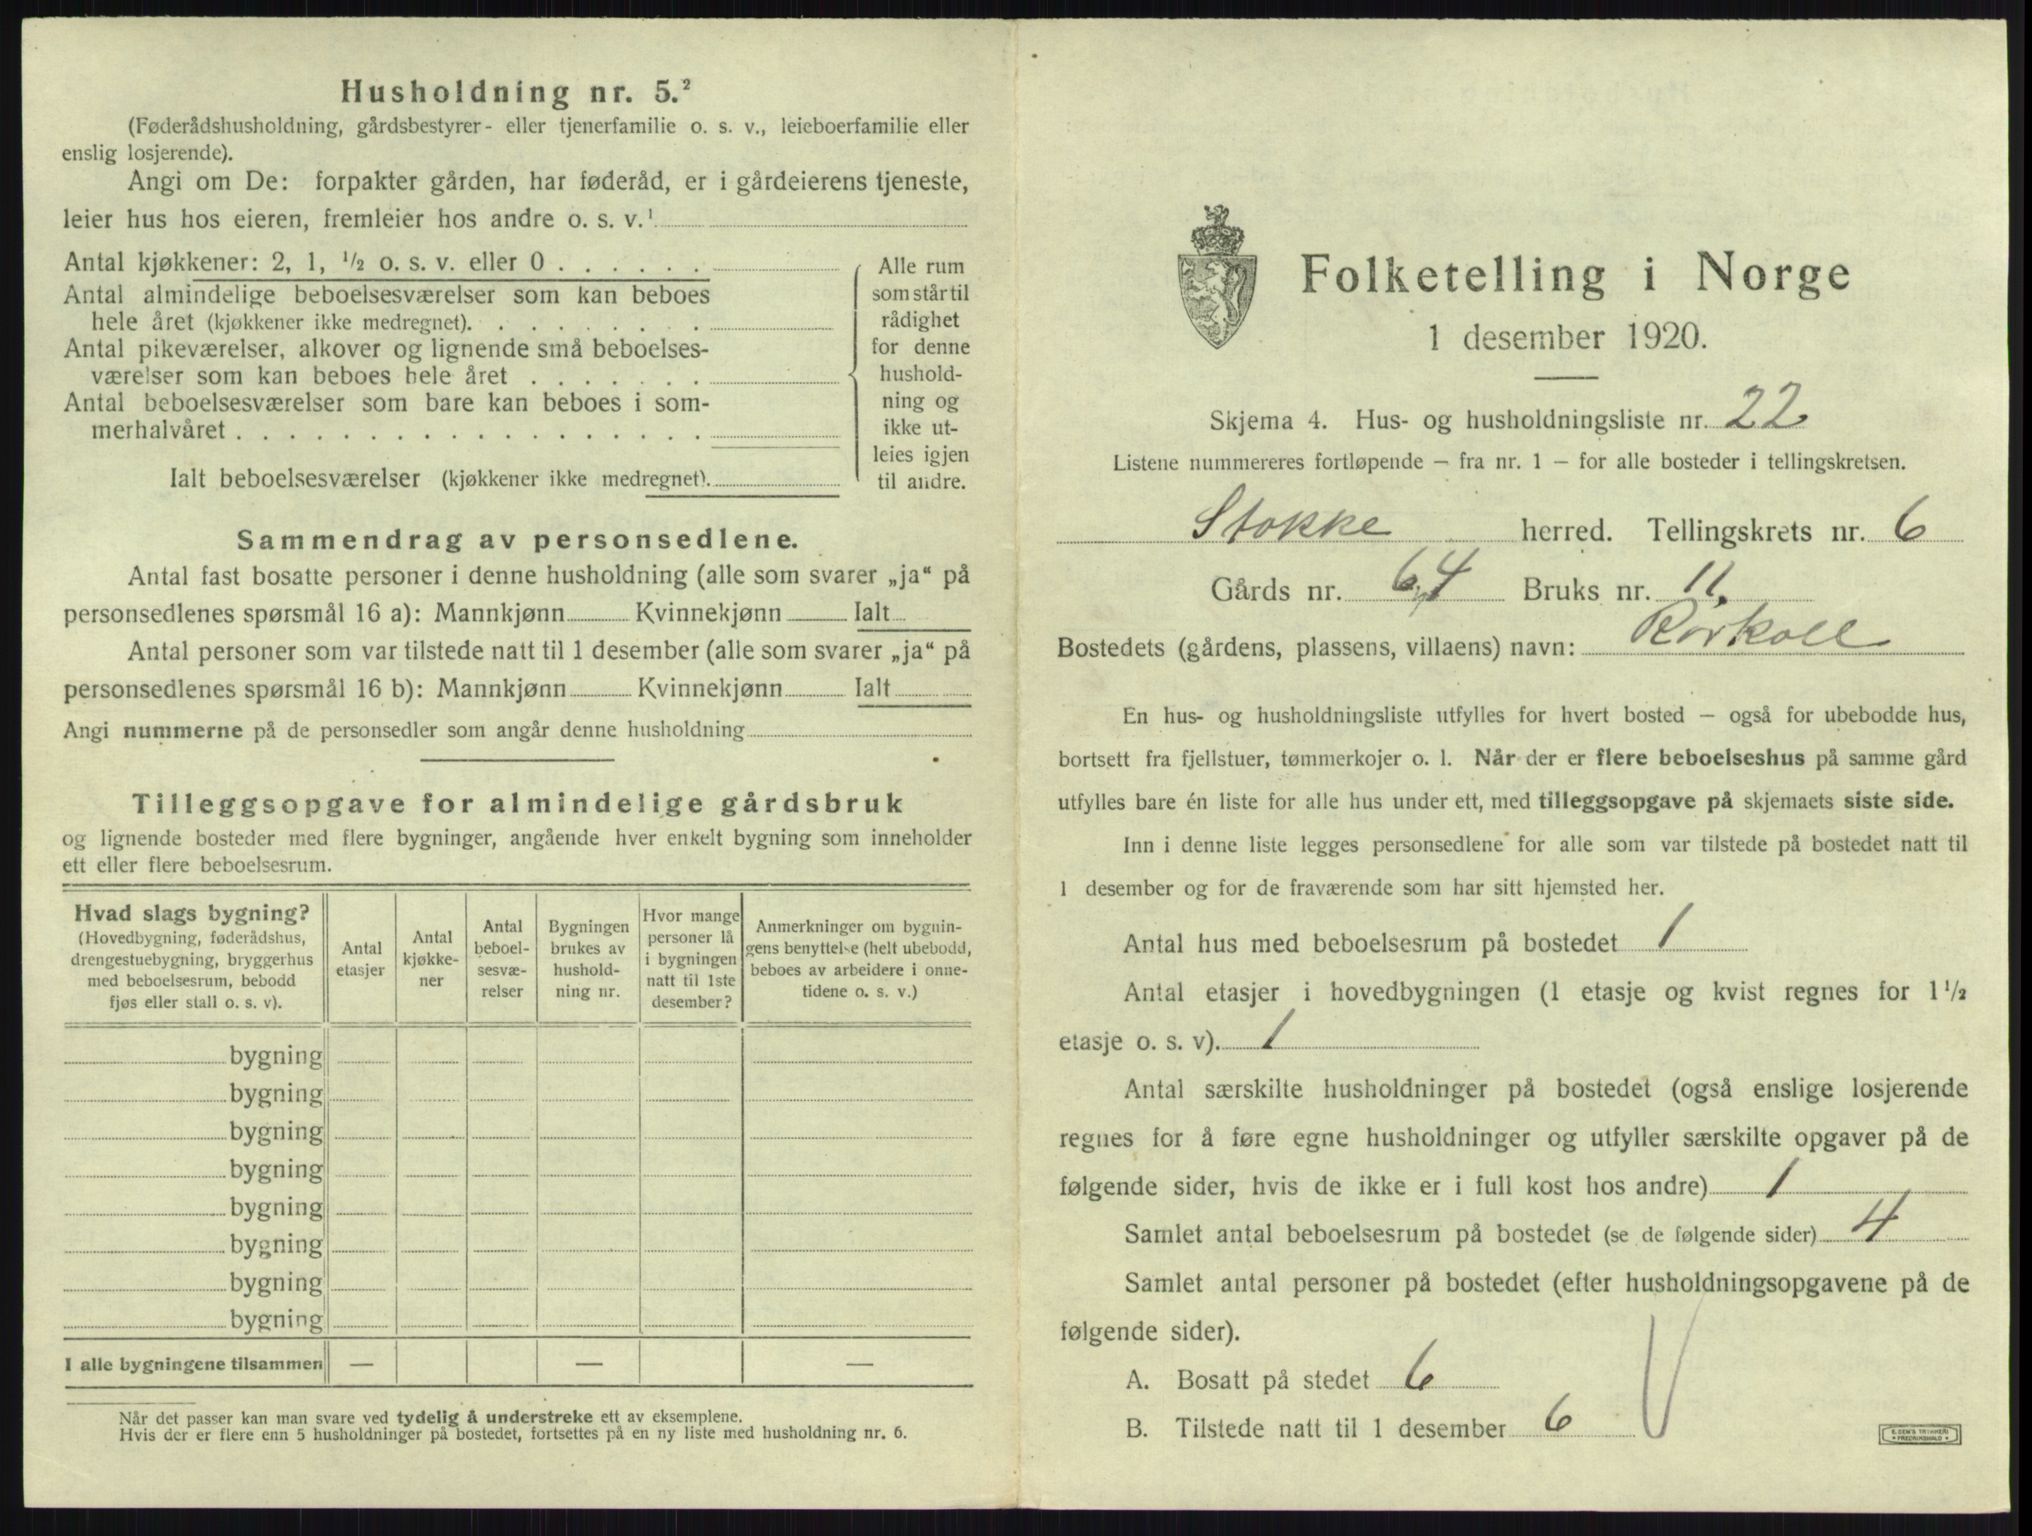 Husholdning nr. 5.²
(Føderådshusholdning, gårdsbestyrer- eller tjenerfamilie o. s. v., leieboerfamilie eller
enslig losjerende).
Angi om De: forpakter gården, har føderåd, er i gårdeierens tjeneste,
leier hus hos eieren, fremleier hos andre o. s. v.¹
Antal kjøkkener: 2, 1, ½ o. s. v. eller 0 . . . . . .
Antal almindelige beboelsesværelser som kan beboes
hele året (kjøkkener ikke medregnet). . . . . . . . .
Antal pikeværelser, alkover og lignende små beboelses-
værelser som kan beboes hele året . . . . . . .
Antal beboelsesværelser som bare kan beboes i som-
merhalvåret . . . . . . . . . . . . . . . . . .
Ialt beboelsesværelser (kjøkkener ikke medregnet).
Alle rum
som står til
rådighet
for denne
hushold-
ning og
ikke ut-
leies igjen
til andre.
Sammendrag av personsedlene.
Antal fast bosatte personer i denne husholdning (alle som svarer „ja“ på
personsedlenes spørsmål 16 a): Mannkjønn Kvinnekjønn Ialt
Antal personer som var tilstede natt til 1 desember (alle som svarer „ja“ på
personsedlenes spørsmål 16 b): Mannkjønn Kvinnekjønn Ialt
Angi nummerne på de personsedler som angår denne husholdning
Tilleggsopgave for almindelige gårdsbruk
og lignende bosteder med flere bygninger, angående hver enkelt bygning som inneholder
ett eller flere beboelsesrum.
Hvad slags bygning?
(Hovedbygning, føderådshus,
drengestuebygning, bryggerhus
med beboelsesrum, bebodd
fjøs eller stall o. s. v).
Antal
etasjer
Antal
kjøkke-
ner
Antal
beboel-
sesvæ-
relser
Bygningen
brukes av
hushold-
ning nr.
Hvor mange
personer lå
i bygningen
natt til 1ste
desember?
Anmerkninger om bygnin-
gens benyttelse (helt ubebodd,
beboes av arbeidere i onne-
tidene o. s. v.)
bygning
bygning
bygning
bygning
bygning
bygning
bygning
bygning
I alle bygningene tilsammen — — —
Når det passer kan man svare ved tydelig å understreke ett av eksemplene.
Hvis der er flere enn 5 husholdninger på bostedet, fortsettes på en ny liste med husholdning nr. 6.
Folketelling i Norge
1 desember 1920.
Skjema 4. Hus- og husholdningsliste nr. 22
Listene nummereres fortløpende – fra nr. 1 – for alle bosteder i tellingskretsen.
Stokke herred. Tellingskrets nr. 6
Gårds nr. 64 Bruks nr. 11.
Bostedets (gårdens, plassens, villaens) navn: Rörkoll
En hus- og husholdningsliste utfylles for hvert bosted – også for ubebodde hus,
bortsett fra fjellstuer, tømmerkojer o. l. Når der er flere beboelseshus på samme gård
utfylles bare én liste for alle hus under ett, med tilleggsopgave på skjemaets siste side.
Inn i denne liste legges personsedlene for alle som var tilstede på bostedet natt til
1 desember og for de fraværende som har sitt hjemsted her.
Antal hus med beboelsesrum på bostedet 1
Antal etasjer i hovedbygningen (1 etasje og kvist regnes for 1 ½
etasje o. s. v). 1
Antal særskilte husholdninger på bostedet (også enslige losjerende
regnes for å føre egne husholdninger og utfyller særskilte opgaver på de
følgende sider, hvis de ikke er i full kost hos andre) 1
Samlet antal beboelsesrum på bostedet (se de følgende sider) 4
Samlet antal personer på bostedet (efter husholdningsopgavene på de
følgende sider).
A. Bosatt på stedet 6
B. Tilstede natt til 1 desember 6